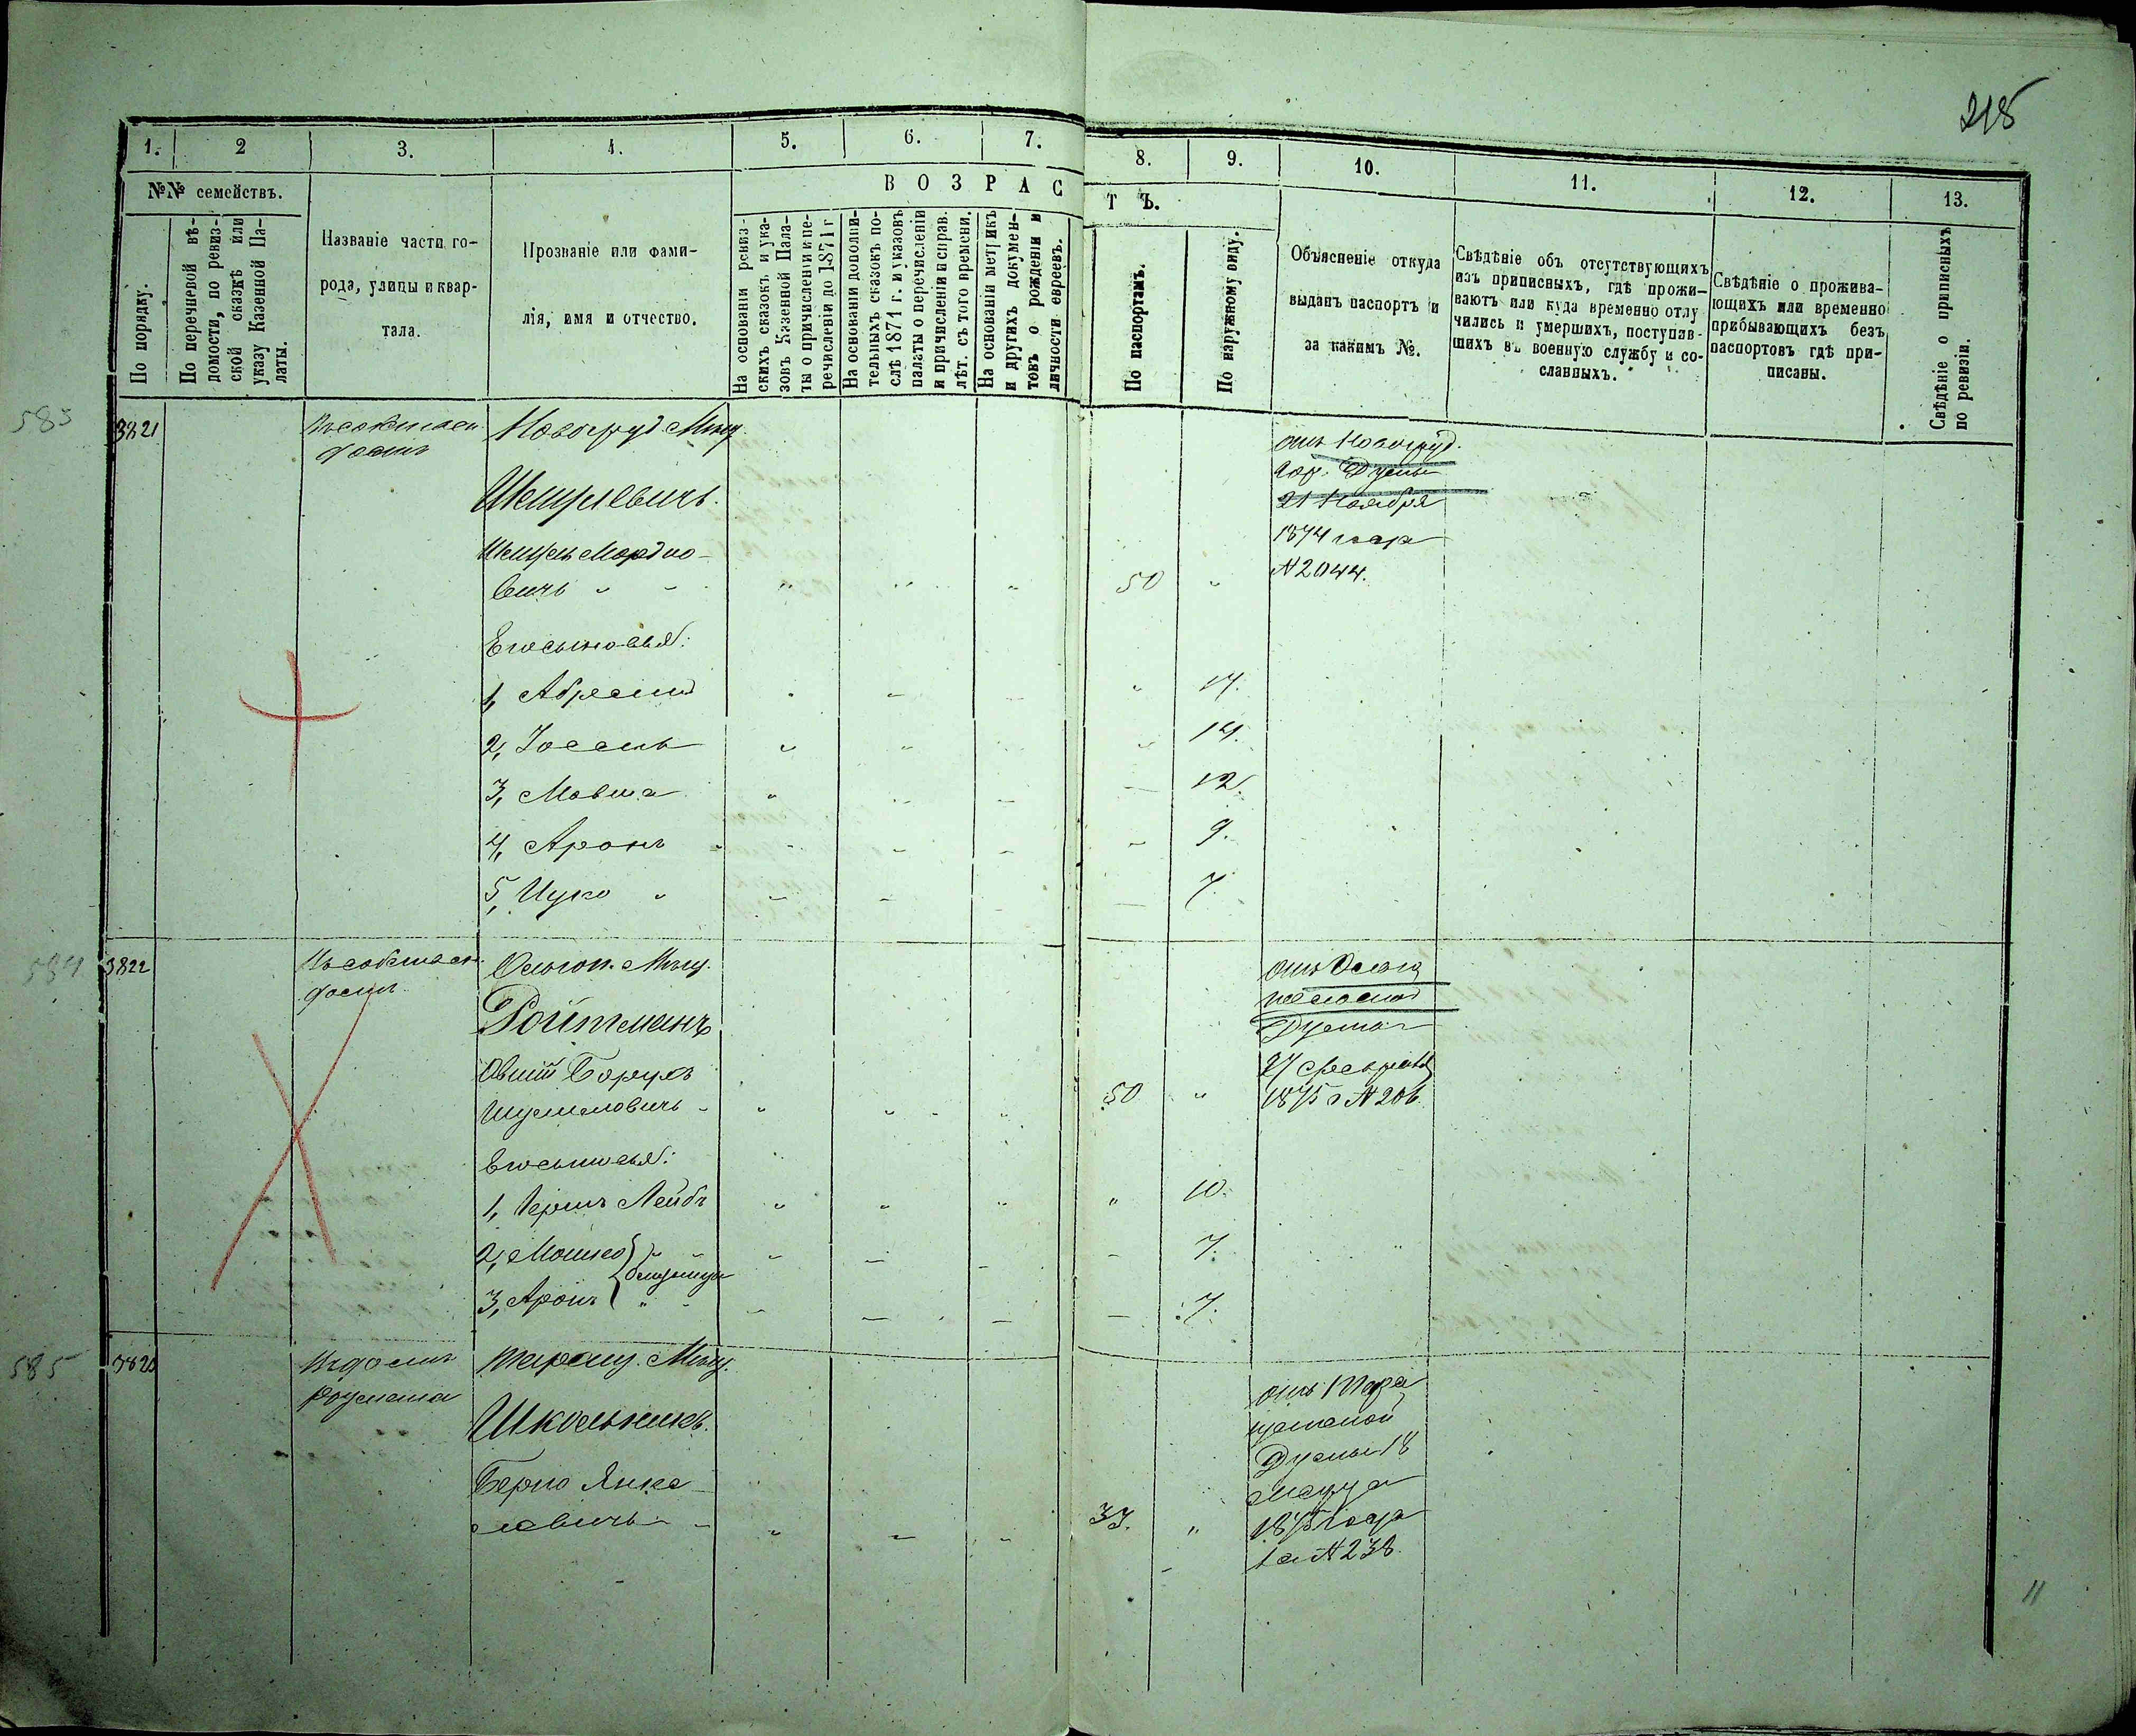 218
1. 2 3. 4. 5. 6. 7. 8. 9. 10. 11. 12. 13.
№№ семействъ.
В О З Р А С Т Ъ.
По порядку.
По перечневой вѣ-
домости, по ревиз-
ской сказкѣ или
указу Казенной Па-
латы.
Названіе части го-
рода, улицы и квар-
тала.
Прозваніе или фами-
лія, имя и отчество.
На основаніи ревиз-
скихъ сказокъ и ука-
зовъ Казенной Пала-
ты о причисленіи и пе-
речисленіи до 1871 г
На основаніи дополни-
тельныхъ сказокъ по-
слѣ 1871 г. и указовъ
палаты о перечисленіи
и причисленіи и справ.
лѣт. съ того времени.
На основаніи метрикъ
и другихъ докумен-
товъ о рожденіи и
личности евреевъ.
По паспортамъ.
По наружному виду.
Объясненіе откуда
выданъ паспортъ и
за какимъ №.
Свѣдѣніе объ отсутствующихъ
изъ приписныхъ, гдѣ прожи-
ваютъ или куда временно отлу
чились и умершихъ, поступив-
шихъ въ военную службу и со-
сланныхъ.
Свѣдѣніе о прожива-
ющихъ или временно
прибывающихъ безъ
паспортовъ гдѣ при-
писаны.
Свѣдѣніе о приписныхъ
по ревизіи.
583 3821 Новогруд. Мѣщ. отъ Новогруд.
домѣ гор. Думы
21 Ноября
Мордко- 1874 года
вичъ 50 N 2044.
Его сыновья:
1, Абрамъ 17.
2, Іосель 14.
3, Мовша 12.
4, Аронъ 9.
5, Ицко 7.
584 3822 Ольгоп. Мѣщ. отъ Ольго
домѣ польской
Ройтманъ Думы
Овшій Борухъ 27 февраля
Шулимовичъ 50 1875 г N 206.
Его сыновья:
1, Гершъ Лейбъ 10.
2, Мошко близнецы 7.
3, Аронъ 7.
585 3823 Въ домѣ Таращ. Мѣщ. отъ Тара
щанской
Школьникъ. Думы 18
Берко Янке Марта
левичъ 33. 1875 года
за N 238.
11